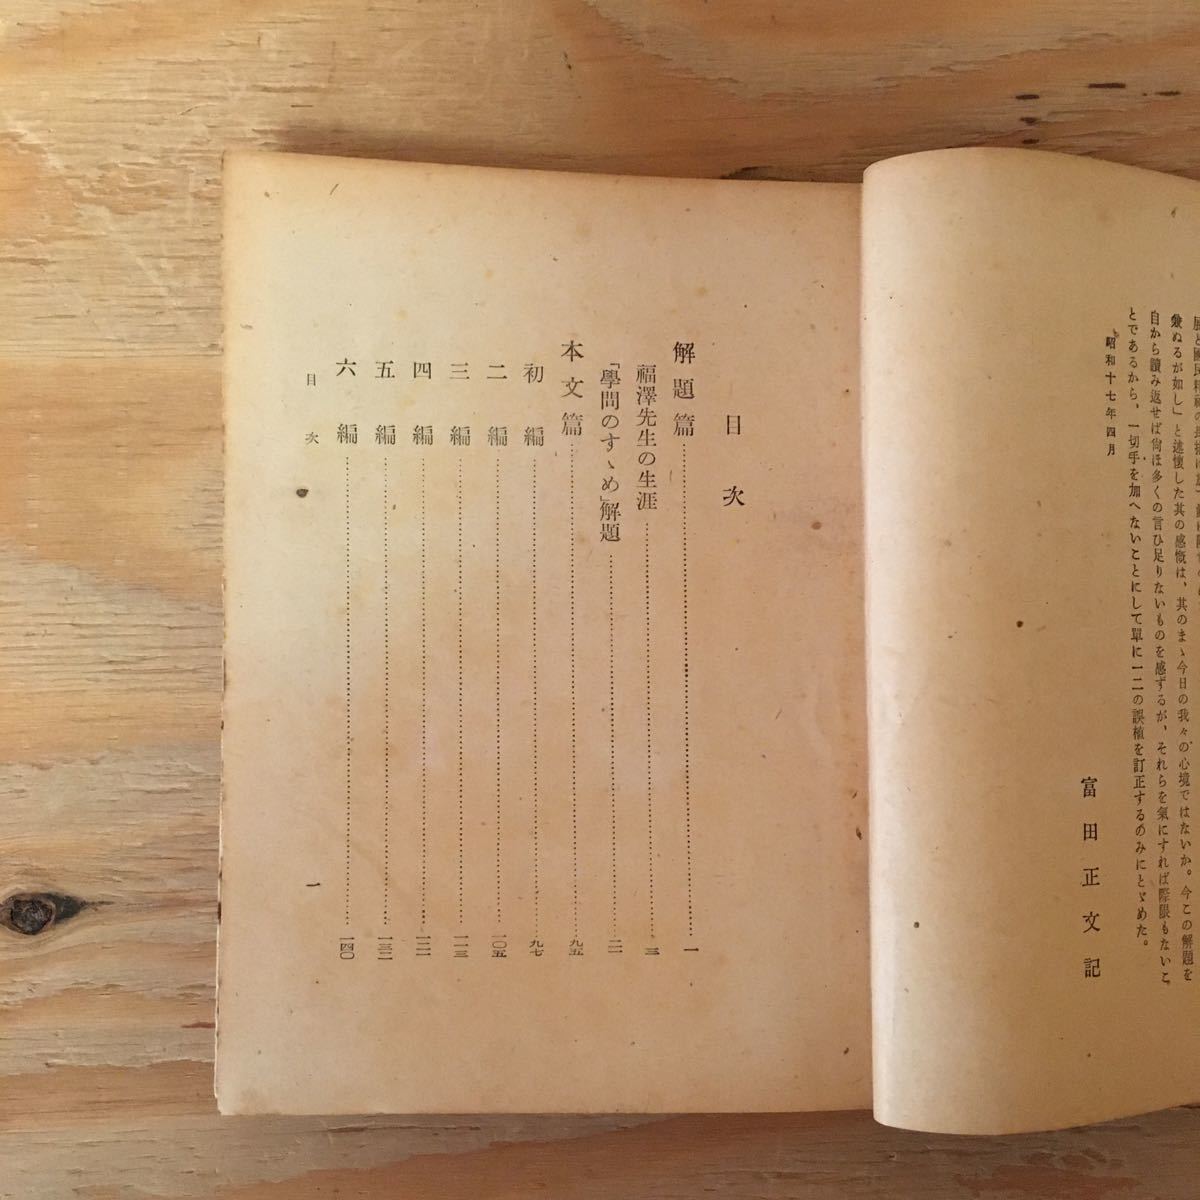 兼ぬるが如し」と述懷した其の感慨は、其のまゝ今日の我々の心境ではないか。今この解題を
自から讀み返せば尙ほ多くの言ひ足りないものを感ずるが、それらを氣にすれば際限もないこ
とであるから、一切手を加へないことにして單に一二の誤植を訂正するのみにとゞめた。
昭和十七年四月
富田正文記
目次
解題篇……一
福澤先生の生涯……三
「學問のすゝめ」解題……二一
本文篇……九五
初編……九七
二編……一〇五
三編……一一三
四編……一二一
五編……一三二
六編……一四〇
目次
一